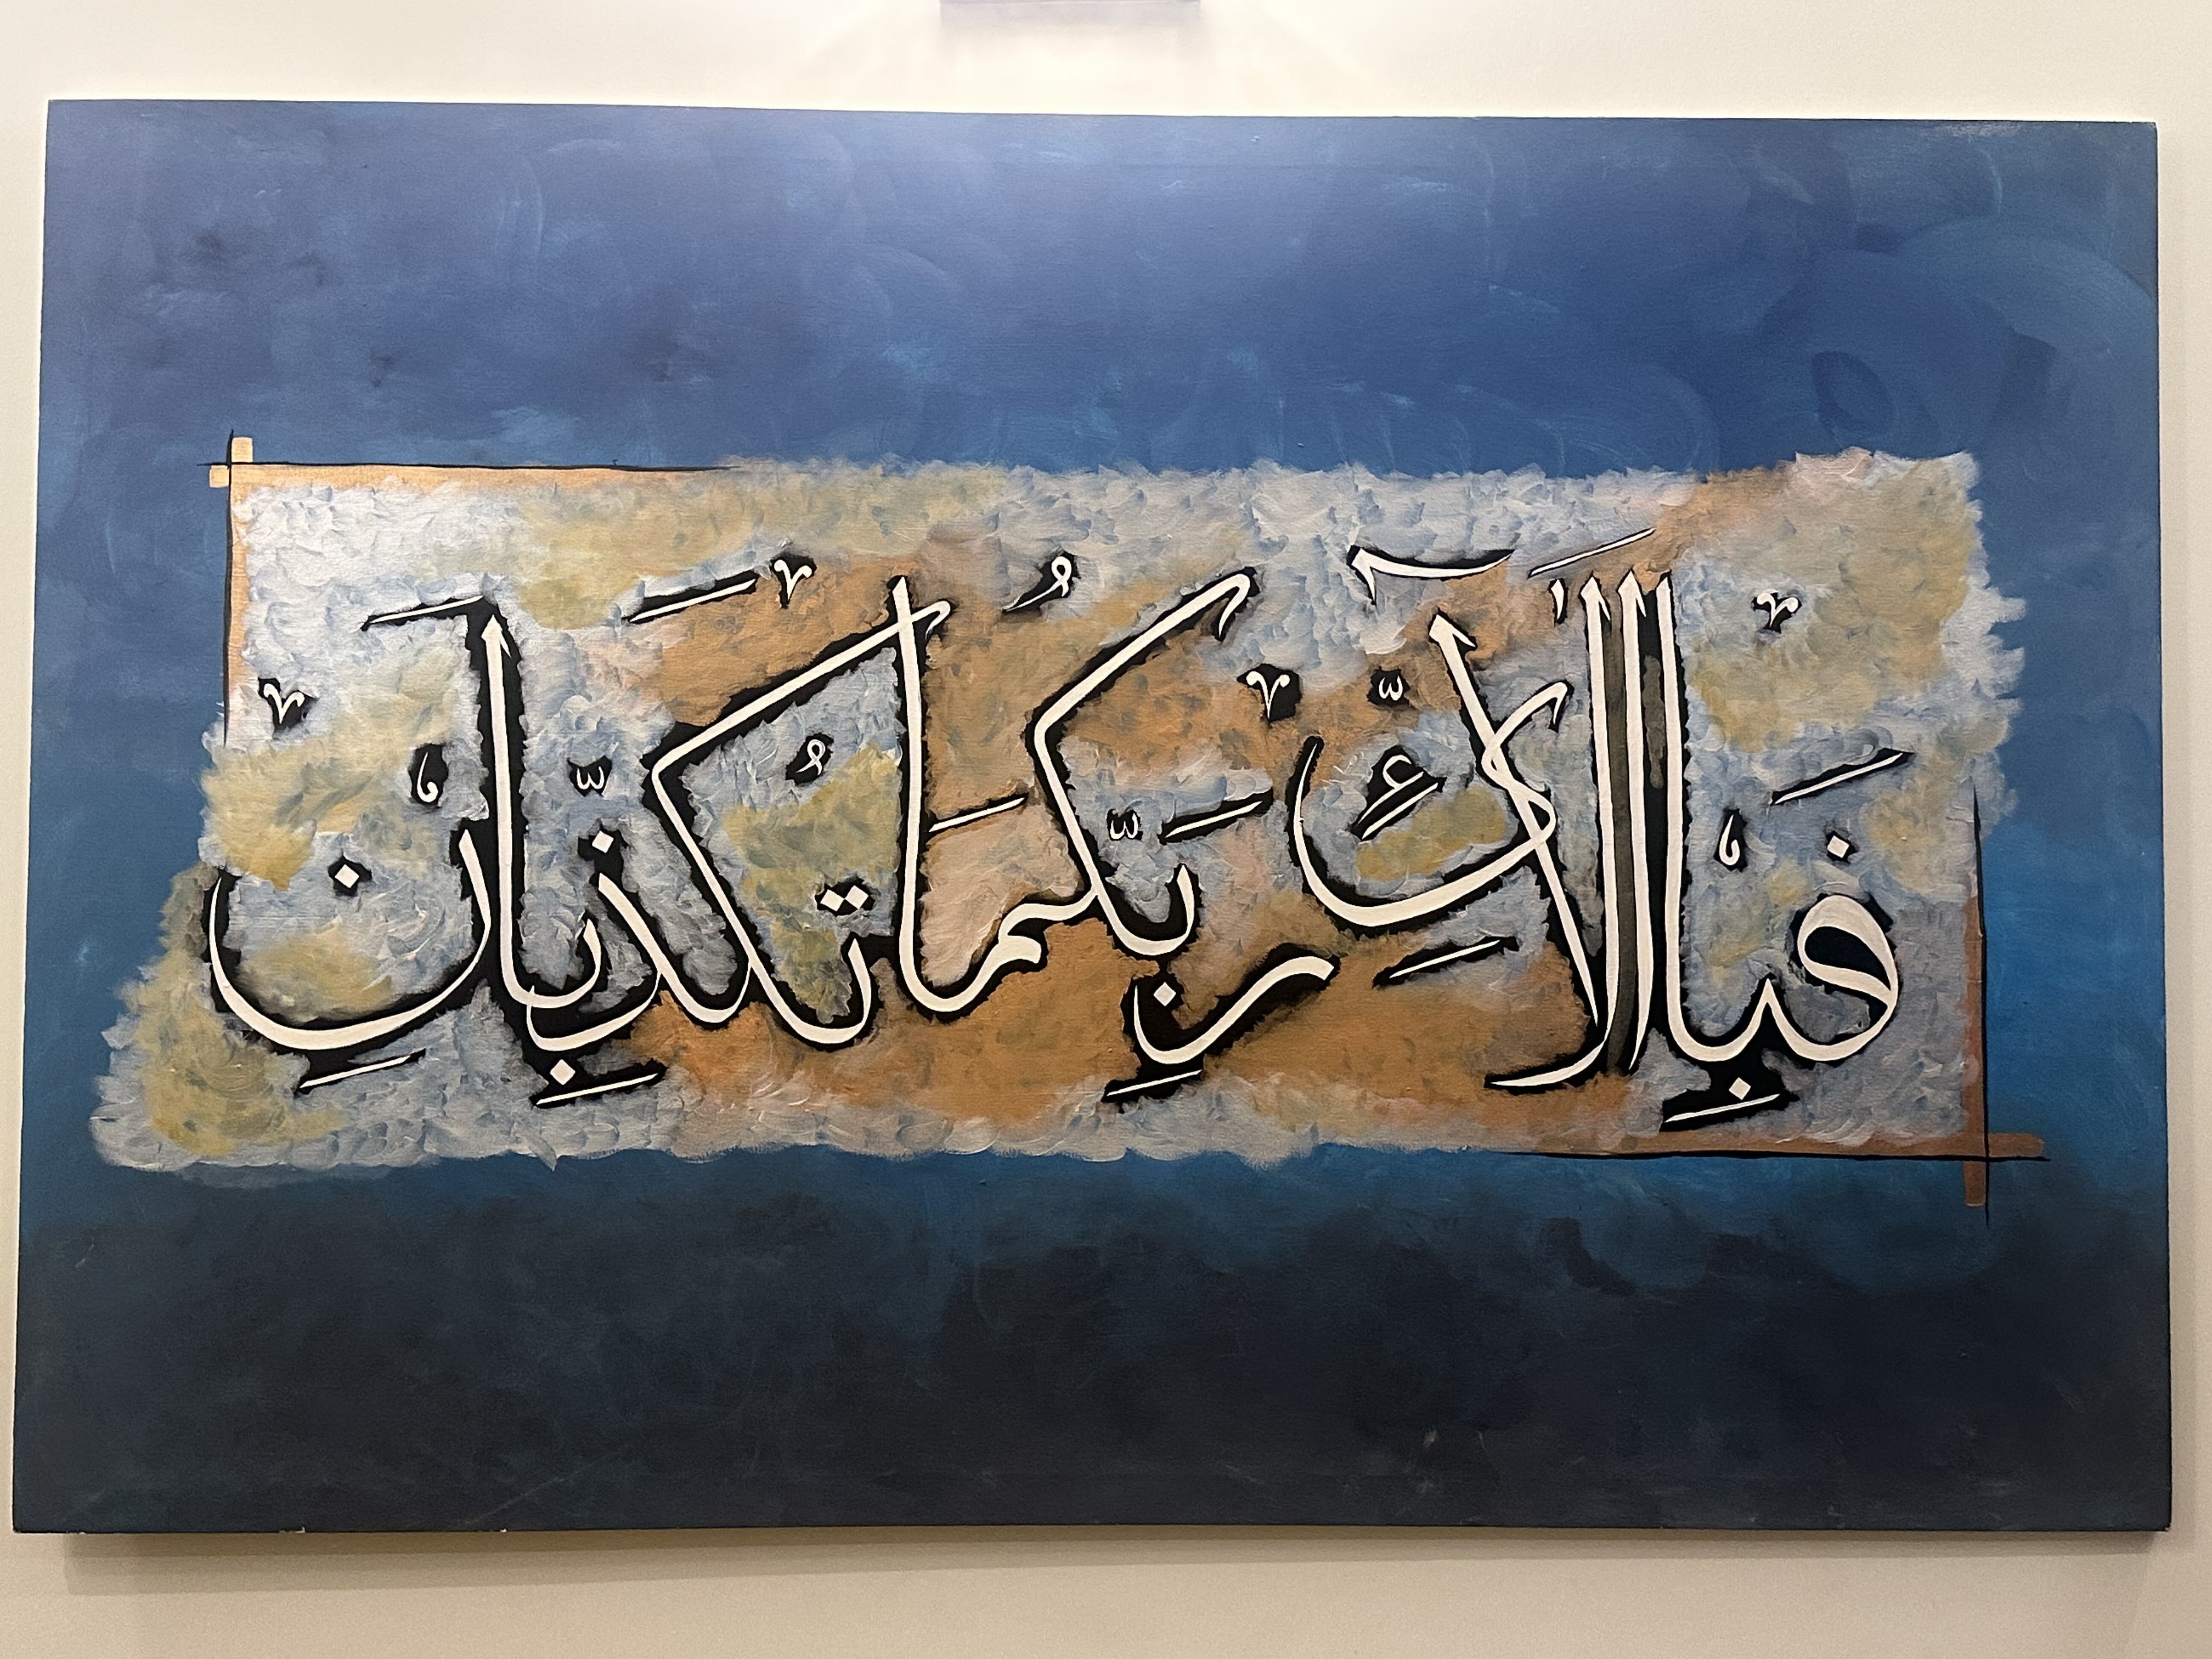 فَبِاَيِّ اٰلَآءِ رَبِّكُمَا تُكَذِّبَانِ